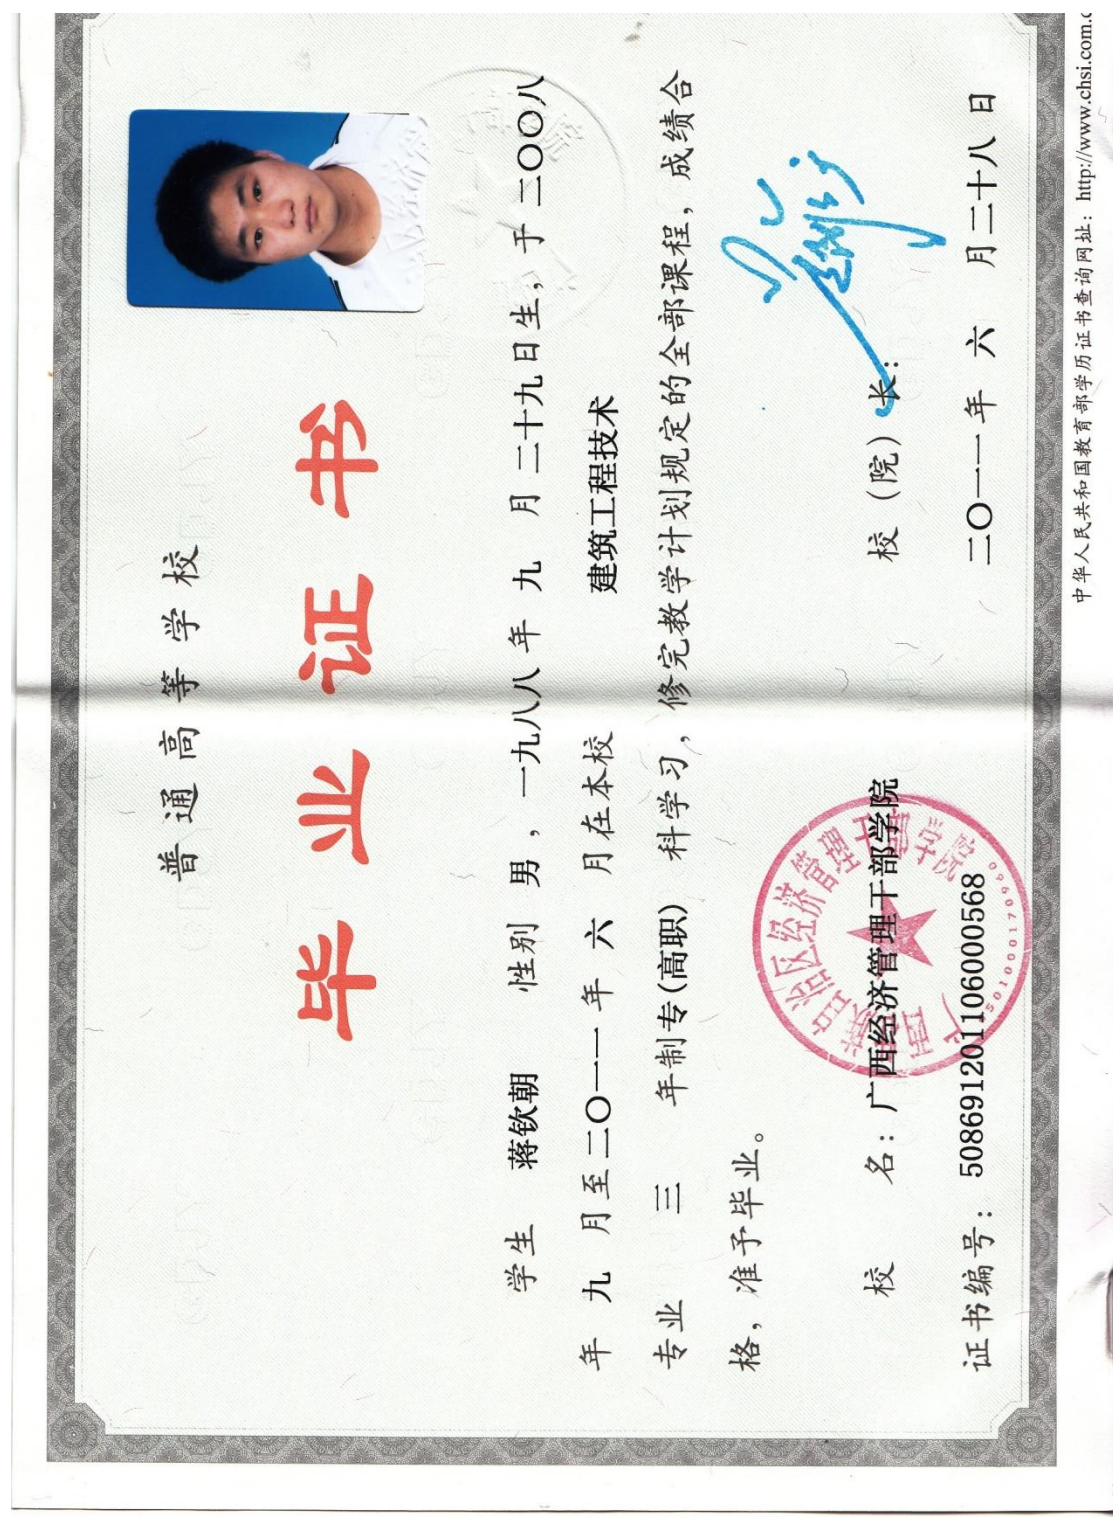 普通高等学校
毕业证书
学生 蒋钦朝 性别 男，一九八八年 九 月二十九日生，于二〇〇八
年 九 月至二〇一一年 六 月在本校 建筑工程技术
专业 三 年制专(高职) 科学习，修完教学计划规定的全部课程，成绩合
格，准予毕业。
校 名：广西经济管理干部学院
校（院）长：
证书编号：508691201106000568
二〇一一年 六 月二十八日
中华人民共和国教育部学历证书查询网址：http://www.chsi.com.c